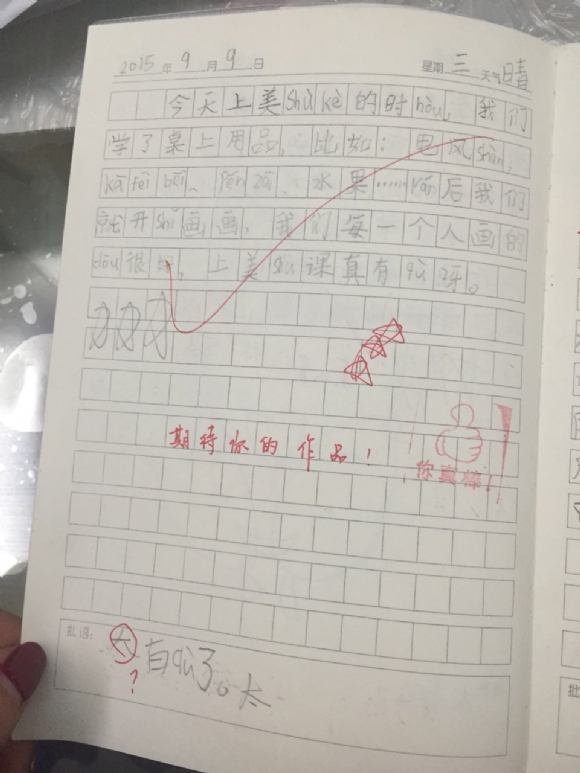 2015年9月9日 星期三 天气晴
今天上美shù kè的时hòu,我们
学了桌上用品,比如:电风shàn,
kā fēi bēi、pén zāi、水果……rán后我们
就开shǐ画画,我们每一个人画的
dōu很好,上美shù课真有qù呀。
期待你的作品!
你真棒!
批语:
太有qù了。太
?